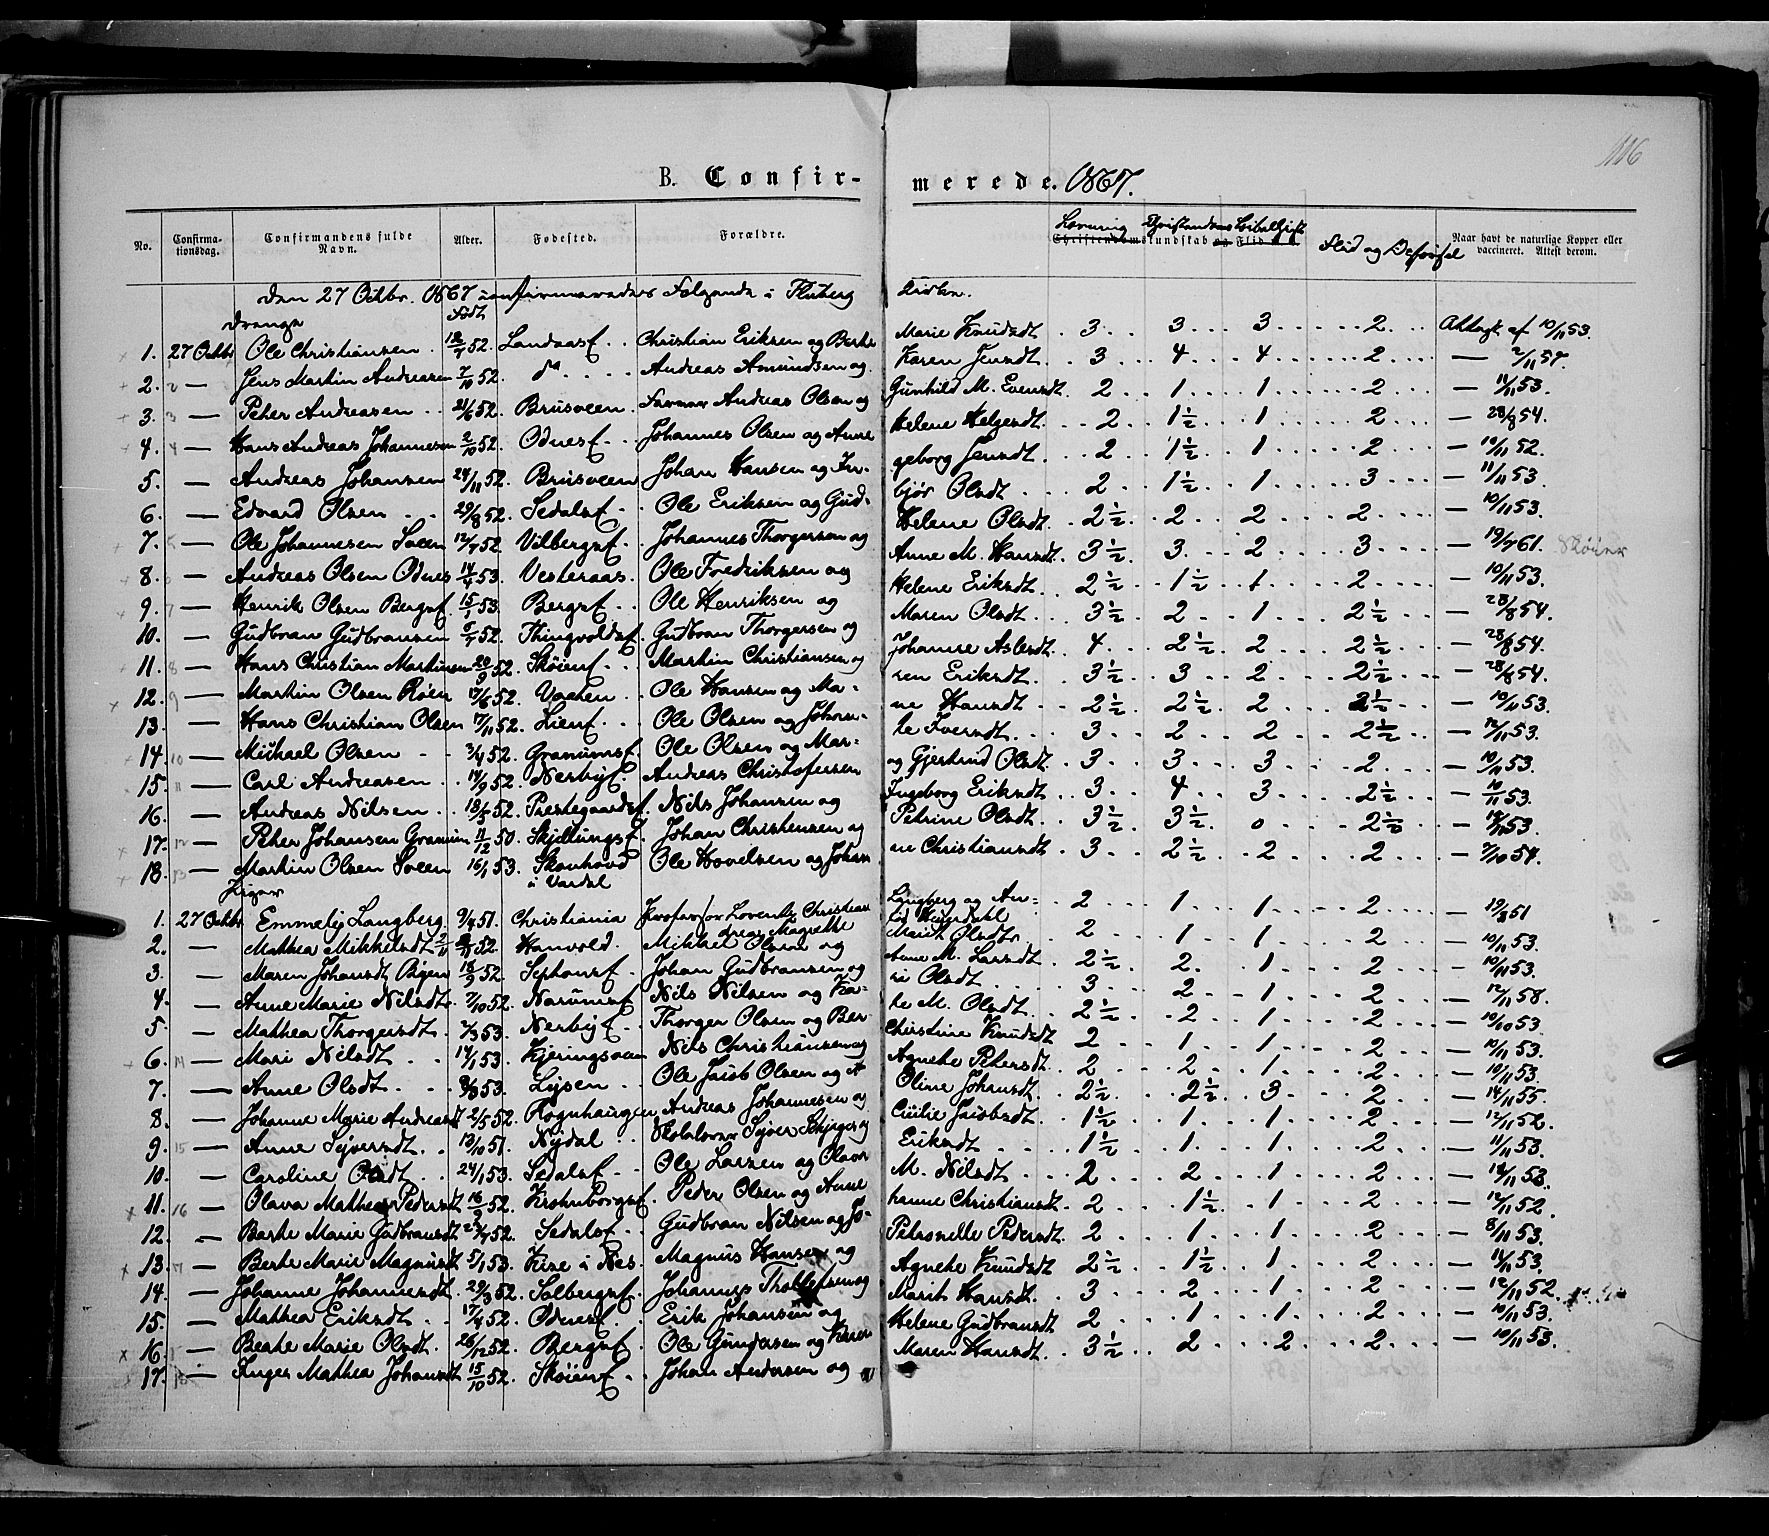 116
B. Confir- merede. 1867.
No. Confirmationsdag. Confirmandens fulde Navn. Alder. Fødested. Forældre. Læsning Christendoms Christendomskundskab og Flid Flid og Naar havt de naturlige Kopper eller vaccineret. Attest derom.
Den 27 Octbr. 1867 confirmeredes Følgende i Fluberg Kirke.
Drenge Født
1. 27 Octbr Ole Christiansen 52. Landaasf. Christian Eriksen og Berthe Marie Knudsdt 3 3 3 2 Attest af 10/11 53.
2. — Jens Martin Andreasen 7/10 52. do Andreas Amundsen og Karen Jensdt 3 4 4 2 — 2/11 57.
3. — Peter Andreasen 21/6 52. Brusveen Andreas Olsen og Gunhild M. Evensdt 2 1 1 2 — 11/11 53.
4. — Hans Andreas Johannesen 2/10 52. Odnesf. Johannes Olsen og Anne Helene Helgesdt 2 1½ 1 2 — 28/8 54.
5. — Andreas Johansen 24/11 52. Brusveen Johan Hansen og Ingeborg Jensdt 2 1½ 1 2 — 10/11 52.
6. — Edvard Olsen 29/8 52. Sedalsf. Ole Eriksen og Gudbjør Olsdt 2 1½ 1 3 — 11/11 53.
7. — Ole Johannesen Sveen 12/7 52. Vilbergsf. Johannes Thorgersen og Helene Olsdt 2½ 2 2 2 — 10/11 53.
8. — Andreas Olsen Odnes 53. Vesteraas. Ole Fredriksen og Anne M. Hansdt 3½ 3 2 3 — 19/7 61. Skøien
9. — Henrik Olsen Bergsf. 15/1 53. Bergsf. Ole Henriksen og Helene Eriksdt 2½ 1½ 1 2 — 10/11 53.
10. — Gudbran Gudbransen 52. Thingvoldsf. Gudbran Thorgersen og Maren Olsdt 3½ 2 1 2½ — 28/8 54.
11. — Hans Christian Martinsen 20/9 52. Skøienf. Martin Christiansen og Johanne Aslesdt 4 2½ 2 2½ — 28/8 54.
12. — Martin Olsen Røen 17/6 52. Ole Hansen og Maren Eriksdt 3½ 3 2 2½ — 28/8 54.
13. — Hans Christian Olsen 17/11 52. Lienf. Ole Olsen og Johanne Hansdt 2½ 2½ 2 2½ — 10/11 53.
14. — Michael Olsen 3/4 52. Granumsf. Ole Olsen og Marte Iversdt 3 2 2 2½ — 12/11 53.
15. — Carl Andreasen 14/9 52. Nerbyf. Andreas Christofersen og Gjertrud Olsdt 3 3 3 2 — 10/11 53.
16. — Andreas Nilsen 18/5 52. Prestegaardsf. Nils Johansen og Ingeborg Eriksdt 3 4 3 2½ — 10/11 53.
17. — Peter Johansen Granum 11/12 50. Skjellungsf. Johan Christensen og Petrine Olsdt 3½ 3½ 0 2½ — 53.
18. — Martin Olsen Sveen 16/1 53. Skonhovd i Vardal Ole Hovelsen og Johanne Christiansdt 3 2½ 2 2 — 7/10 54.
Piger
1. 27 Octbr Emmelej Langberg 9/4 51. Christiania Professor Lorents Christian Langberg og 2 1 1 2 — 19/8 51
2. — Mathea Mikkelsdt 52. Hanvold. Mikkel Olsen og Marit Olsdt 2 1 1 2 — 10/11 53.
3. — Maren Johansdt 18/9 52. Johan Gudbransen og Anne M. Larsdt 2½ 2 1 2 — 10/11 53.
4. — Anne Marie Nilsdt 7/10 52. Narumsf. Nils Nilsen og Kari Olsdt 3 2 1 2 — 12/11 58.
5. — Mathea Thorgersdt 7/3 53. Nerbyf. Thorger Olsen og Berte M. Olsdt 2½ 2 1 2 — 10/10 53.
6. — Mari Nilsdt 14/1 53. Kjeringsveen Nils Christiansen og Christine Knudsdt 2 1 1 2 — 10/11 53.
7. — Anne Olsdt 53. Lysen Ole Jacob Olsen og Agnethe Petersdt 2 2 1 2 — 10/11 53.
8. — Johanne Marie Andreasdt 2/5 52. Rognhaugen Andreas Johannesen og Oline Johansdt 2½ 2½ 3 2 — 14/11 55.
9. — Anne Syversdt 13/10 51. Nydal Skolelærer Syver og Cicilie Jacobsdt 1½ 1 1 2 — 12/11 52.
10. — Caroline Olsdt 24/1 53. Sedalsf. Ole Larsen og Olava Eriksdt 1½ 1 1 2 — 11/11 53.
11. — Olava Mathea Pedersdt 16/9 52. Krohnborgsf. Peder Olsen og Anne M. Nilsdt 2 2 1 2 — 53.
12. — Berthe Marie Gudbransdt 52. Sedalsf. Gudbran Nilsen og Johanne Christiansdt 2 1½ 1 2 — 12/11 52.
13. — Berthe Marie Magnusdt 5/1 53. i Næs. Magnus Hansen og Petronelle Pedersdt 2 1 1 2 — 8/11 53.
14. — Johanne Johannesdt 29/3 52. Solbergsf. Johannes Thollefsen og Agnethe Knudsdt 2½ 1½ 1 2 — 14/11 53.
15. — Mathea Eriksdt 17/4 52. Odnesf. Erik Johansen og Marit Hansdt 3 2 1 2 — 12/11 52.
16. — Berthe Marie Olsdt 26/12 52. Bergsf. Ole Gundersen og Karen Helene Gudbransdt 2 1 1 2 — 10/11 53.
17. — Inger Mathea Johansdt 15/10 52. Skøienf. Johan Andersen og Maren Hansdt 3½ 2 2 2 — 10/11 53.